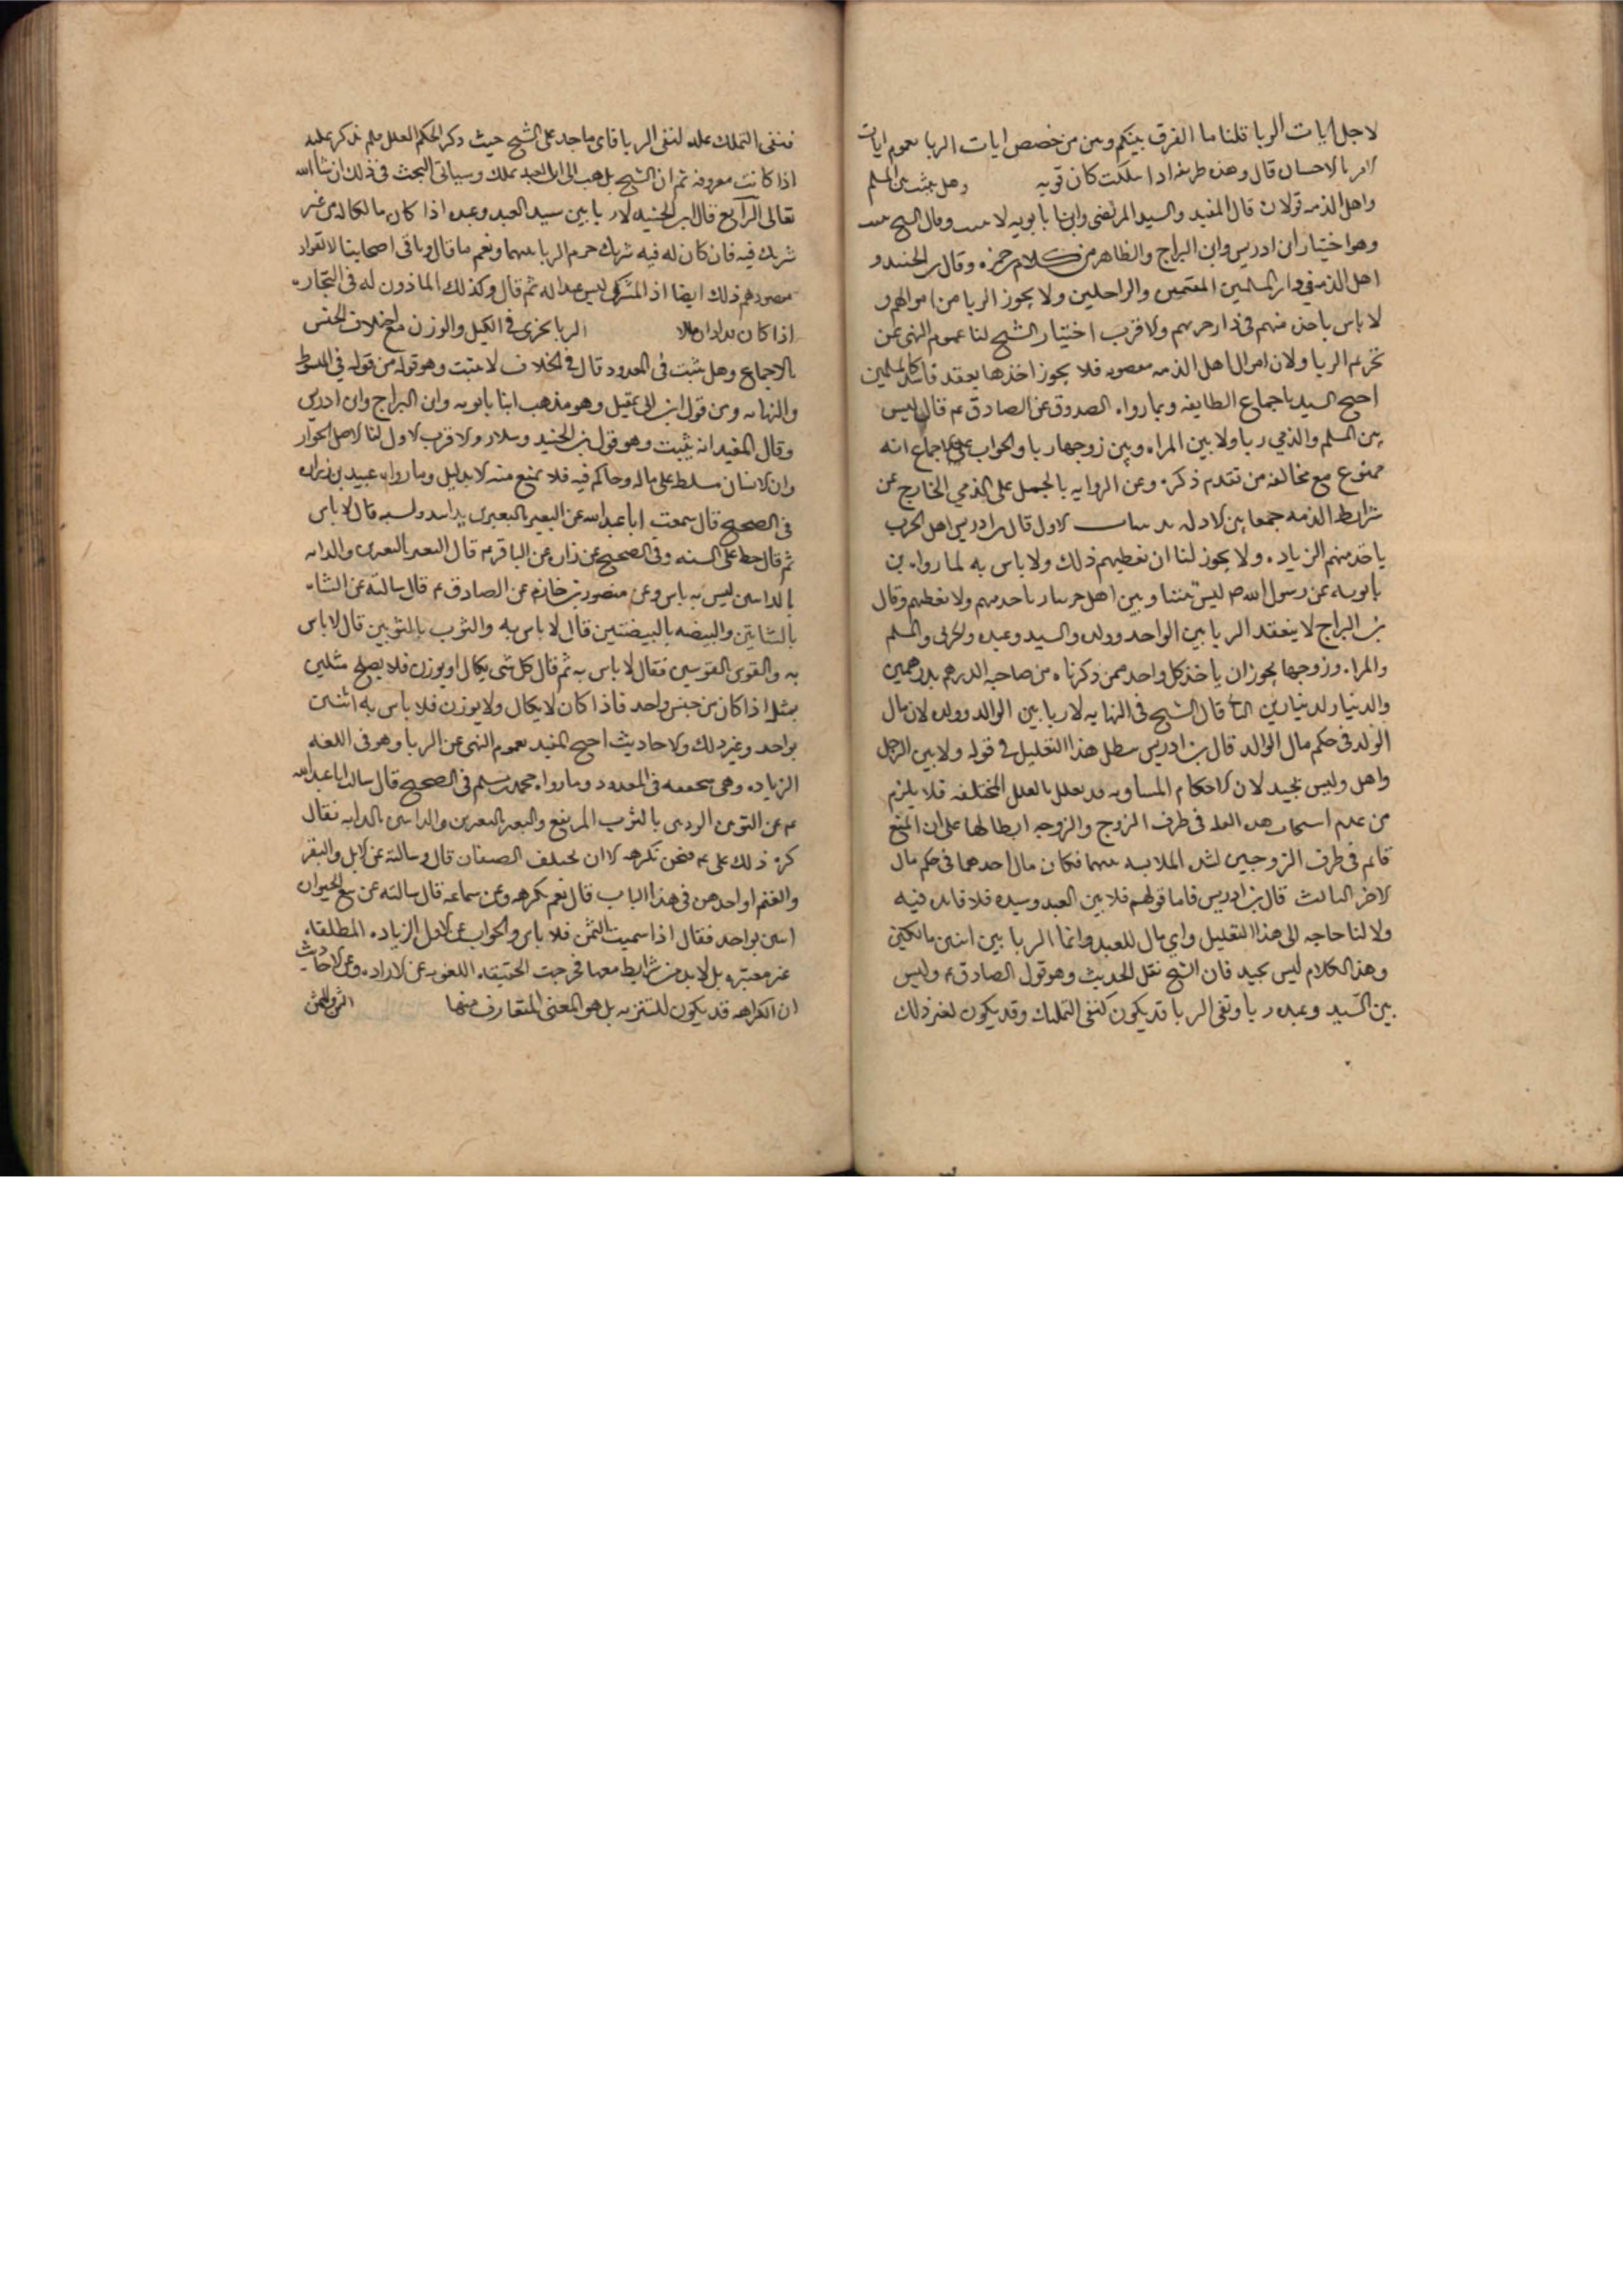 لاجل ايات الربا قلنا ما الفرق بينكم وبين من خصص ايات الربا بعموم ايات
الامر بالاحسان قال وهذه طريقة اذا سلكت كان قوية وهل يثبت بين المسلم
واهل الذمه قولان قال المفيد والسيد المرتضى وابنا بابويه لا يثبت وقال الشيخ يثبت
وهو اختيار ابن ادريس وابن البراج والظاهر من كلام حمزه وقال بن الجنيد و
اهل الذمه في دار المسلمين المقيمين والراحلين ولا يجوز الربا من اموالهم و
لا باس باخذه منهم في دار حربهم والاقرب اختيار الشيخ لنا عموم النهي عن
تحريم الربا ولان اموال اهل الذمه معصومه فلا يجوز اخذها بعقد فاسد كالمسلمين
احتج السيد باجماع الطايفه وبما رواه الصدوق عن الصادق ع قال ليس
بين المسلم والذمي ربا ولا بين المراه وبين زوجها ربا والجواب عن الاجماع انه
ممنوع مع مخالفه من تقدم ذكره وعن الروايه بالحمل على الذمي الخارج عن
شرايط الذمه جمعا بين الادله الاول قال بن ادريس اهل الحرب
ياخذ منهم الزياده ولا يجوز لنا ان نعطيهم ذلك ولا باس به لما رواه بن
بابويه عن رسول الله ص ليس بيننا وبين اهل حربنا ربا ناخذ منهم ولا نعطيهم وقال
بن البراج لا ينعقد الربا بين الواحد وولده والسيد وعبده والحربي والمسلم
والمراه وزوجها يجوز ان ياخذ كل واحد ممن ذكرناه من صاحبه الدرهم بدرهمين
والدينار بدينارين قال الشيخ في النهايه لا ربا بين الوالد وولده لان مال
الولد في حكم مال الوالد قال بن ادريس يبطل هذا التعليل في قوله ولا بين الرجل
واهله وليس بجيد لان الاحكام المتساويه قد تعلل بالعلل المختلفه فلا يلزم
من عدم هذه العله في طرف الزوج والزوجه ابطالها على ان المنع
قائم في طرف الزوجين لشده الملابسه بينهما فكان مال احدهما في حكم مال
الاخر الثالث قال بن ادريس فاما قولهم فلا بين العبد وسيده فلا فايده فيه
ولا لنا حاجه الى هذا التعليل واي مال للعبد وانما الربا بين اثنين مالكين
وهذا الكلام ليس بجيد فان الشيخ نقل الحديث وهو قول الصادق ع وليس
بين السيد وعبده ربا ونفي الربا قد يكون لنفي التمليك وقد يكون لغير ذلك
فنفى التملك عله لنفي الربا فاي ماخذ على الشيخ حيث ذكر الحكم المعلل فلم يذكر علته
اذا كانت معروفه ثم ان الشيخ يذهب الى ان العبد يملك وسياتي البحث في ذلك ان شا الله
تعالى الرابع قال بن الجنيد لا ربا بين سيد العبد وعبده اذا كان مالكا له من غير
شريك فيه فان كان له فيه شريك حرم الربا بينهما ونعم ما قال وباقي اصحابنا
ذلك ايضا اذ المشترك ليس عبدا له ثم قال وكذلك الماذون له في التجاره
اذا كان الربا يجري في الكيل والوزن مع اختلاف الجنس
بالاجماع وهل يثبت في المعدود قال في الخلاف لا يثبت وهو قوله من قوله في المبسوط
والنهايه ومن قول ابن ابي عقيل وهو مذهب ابنا بابويه وابن البراج وابن ادريس
وقال المفيد انه يثبت وهو قول بن الجنيد وسلار والاقرب الاول لنا الاصل الجواز
وان الانسان مسلط على ماله وحاكم فيه فلا يمنع منه الا بدليل وما رواه عبيد بن زراره
في الصحيح قال سمعت ابا عبدالله عن البعير بالبعيرين يدا بيد ونسيه قال لا باس
ثم قال خط على النسيه وفي الصحيح عن زراره عن الباقر ع قال البعير بالبعيرين والدابه
بالدابتين ليس به باس وعن منصور بن حازم عن الصادق ع قال سالته عن الشاه
بالشاتين والبيضه بالبيضتين قال لا باس به والثوب بالثوبين قال لا باس
به والفرس بالفرسين فقال لا باس به ثم قال كل شي يكال او يوزن فلا يصلح مثلين
بمثل اذا كان من جنس واحد فاذا كان لا يكال ولا يوزن فلا باس به اثنين
بواحد وغير ذلك والاحاديث احتج المفيد بعموم النهي عن الربا وهو في اللغه
الزياده وهي متحققه في المعدود وما رواه محمد بن مسلم في الصحيح قال سالت ابا عبدالله
ع عن الثوبين الرديين بالثوب المرتفع والبعير بالبعيرين والدابتين بالدابه فقال
كره ذلك علي ع فنحن نكرهه الا ان يختلف الصنفان قال وسالته عن الابل والبقر
والغنم او احدهن في هذا الباب قال نعم نكرهه وعن سماعه قال سالته عن بيع الحيوان
اثنين بواحد فقال اذا سميت الثمن فلا باس والجواب عن الاول الزياده المطلقه
غير معتبره بل لابد من شرايط معها فخرجت الحقيقه اللغويه عن الاراده وعن الاحاديث
ان الكراهه قد يكون للتنزيه بل هو المعنى المتعارف منها